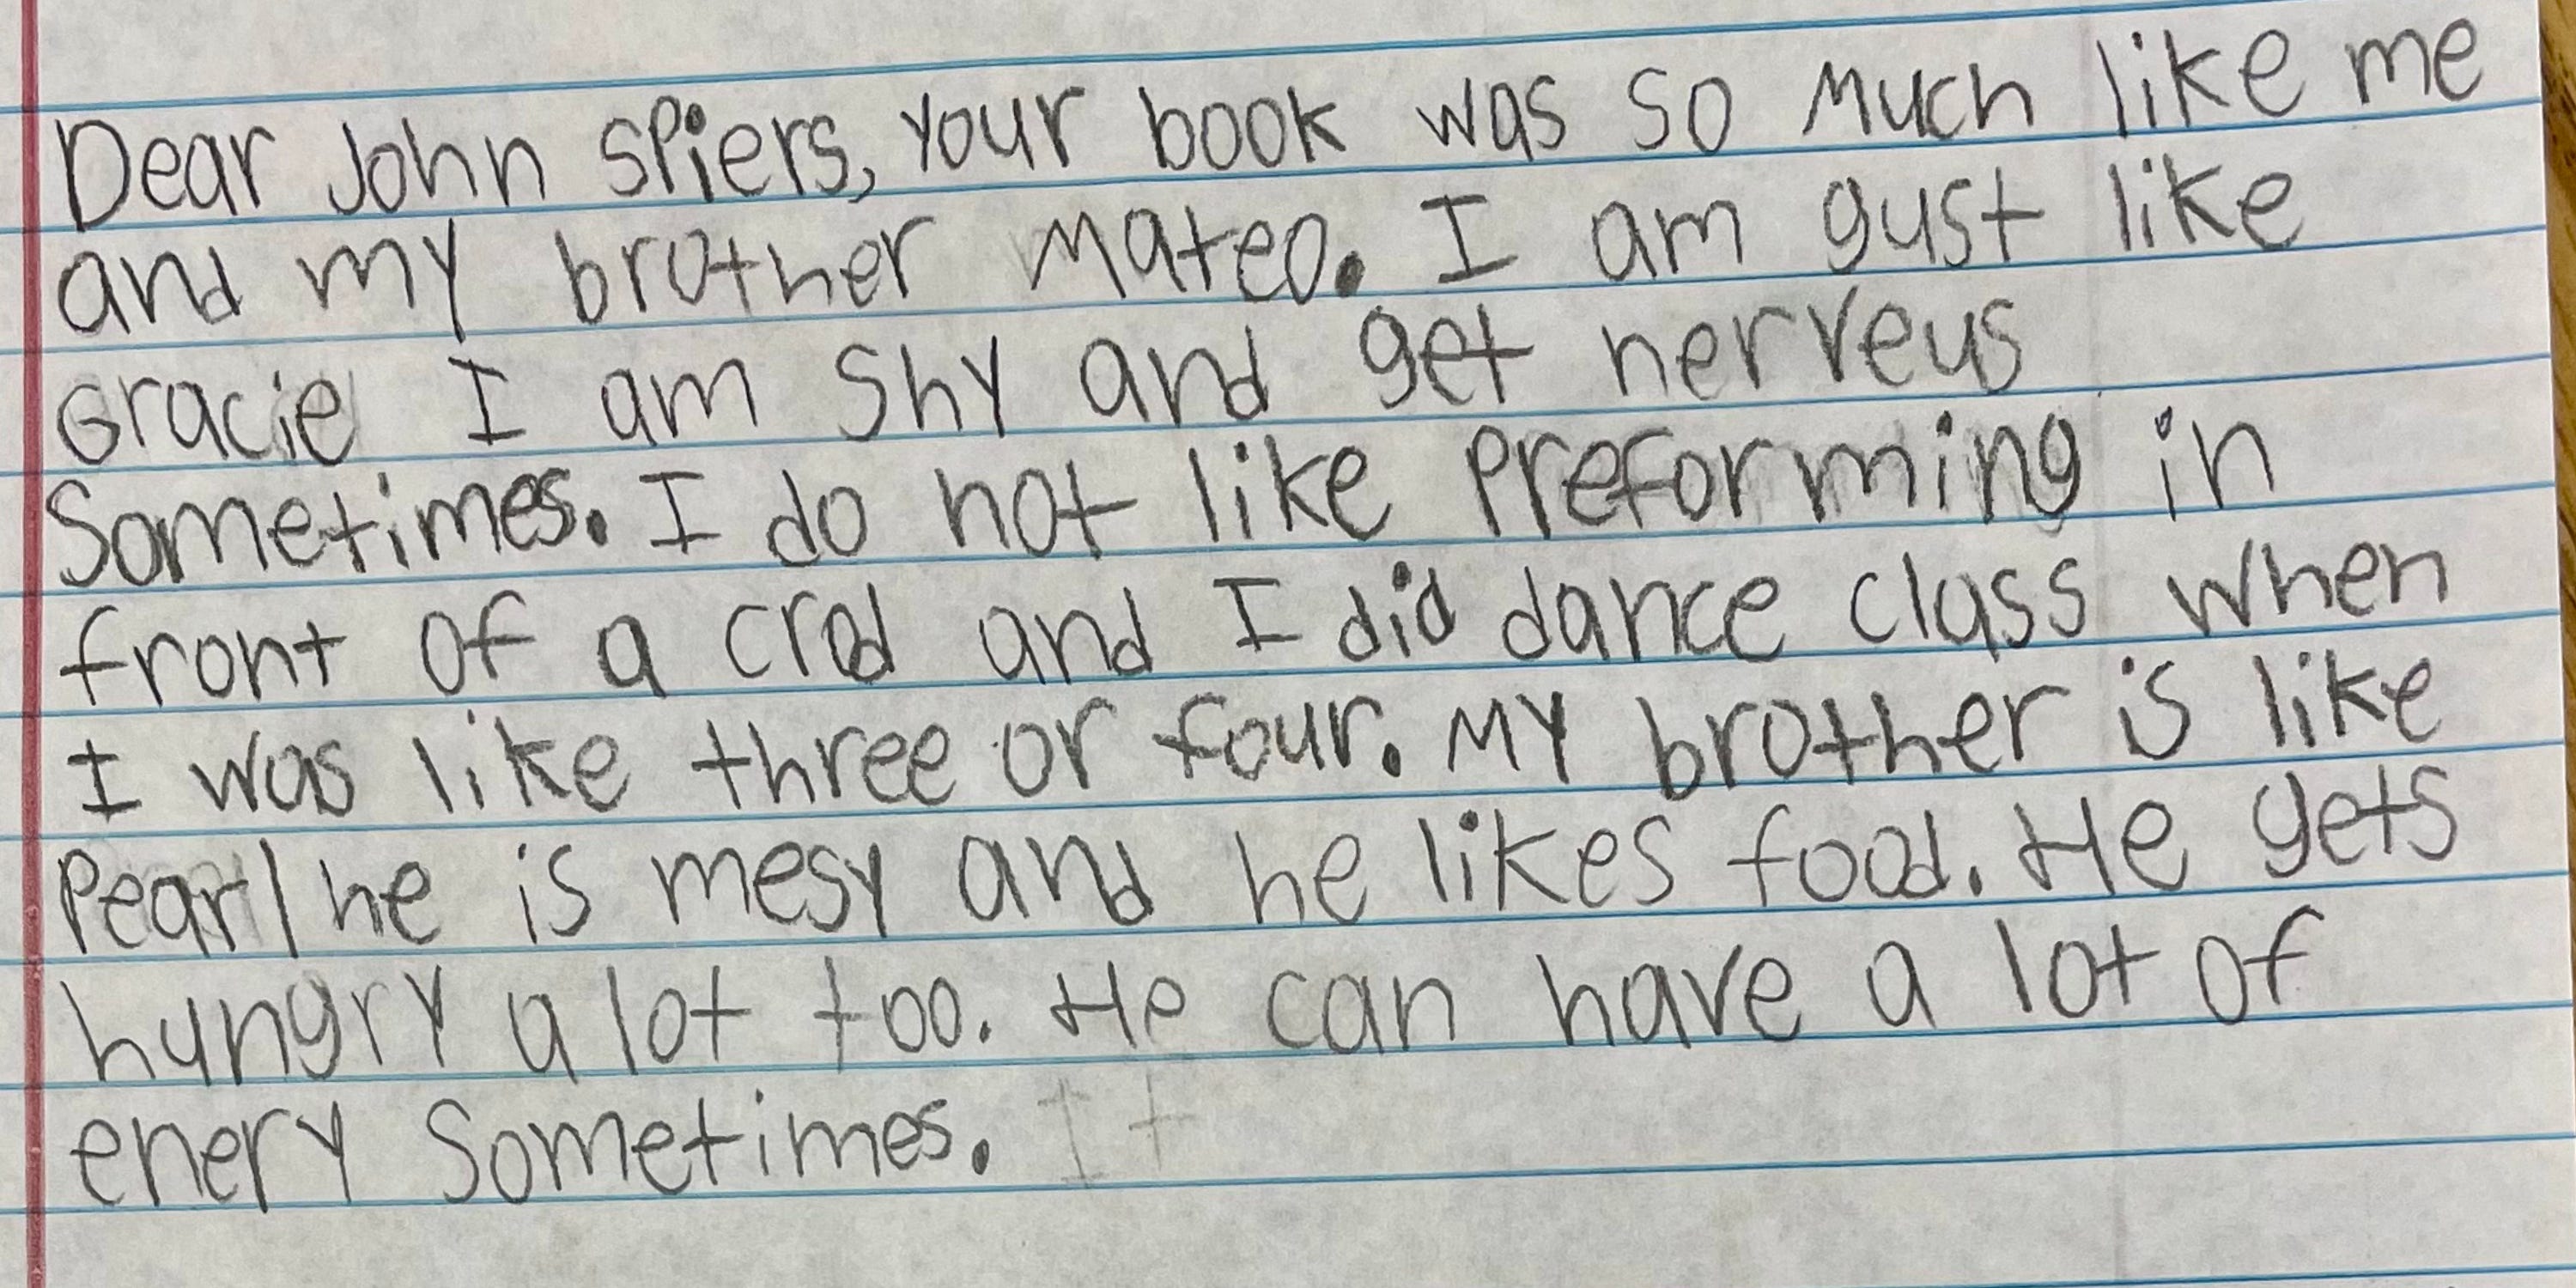 Dear John spiers, your book was so much like me
and my brother mateo. I am gust like
Gracie I am shy and get nerveus
Sometimes. I do not like preforming in
front of a crod and I did dance class when
I was like three or four. My brother is like
Pearl he is mesy and he likes food. He gets
hungry a lot too. He can have a lot of
enery Sometimes.